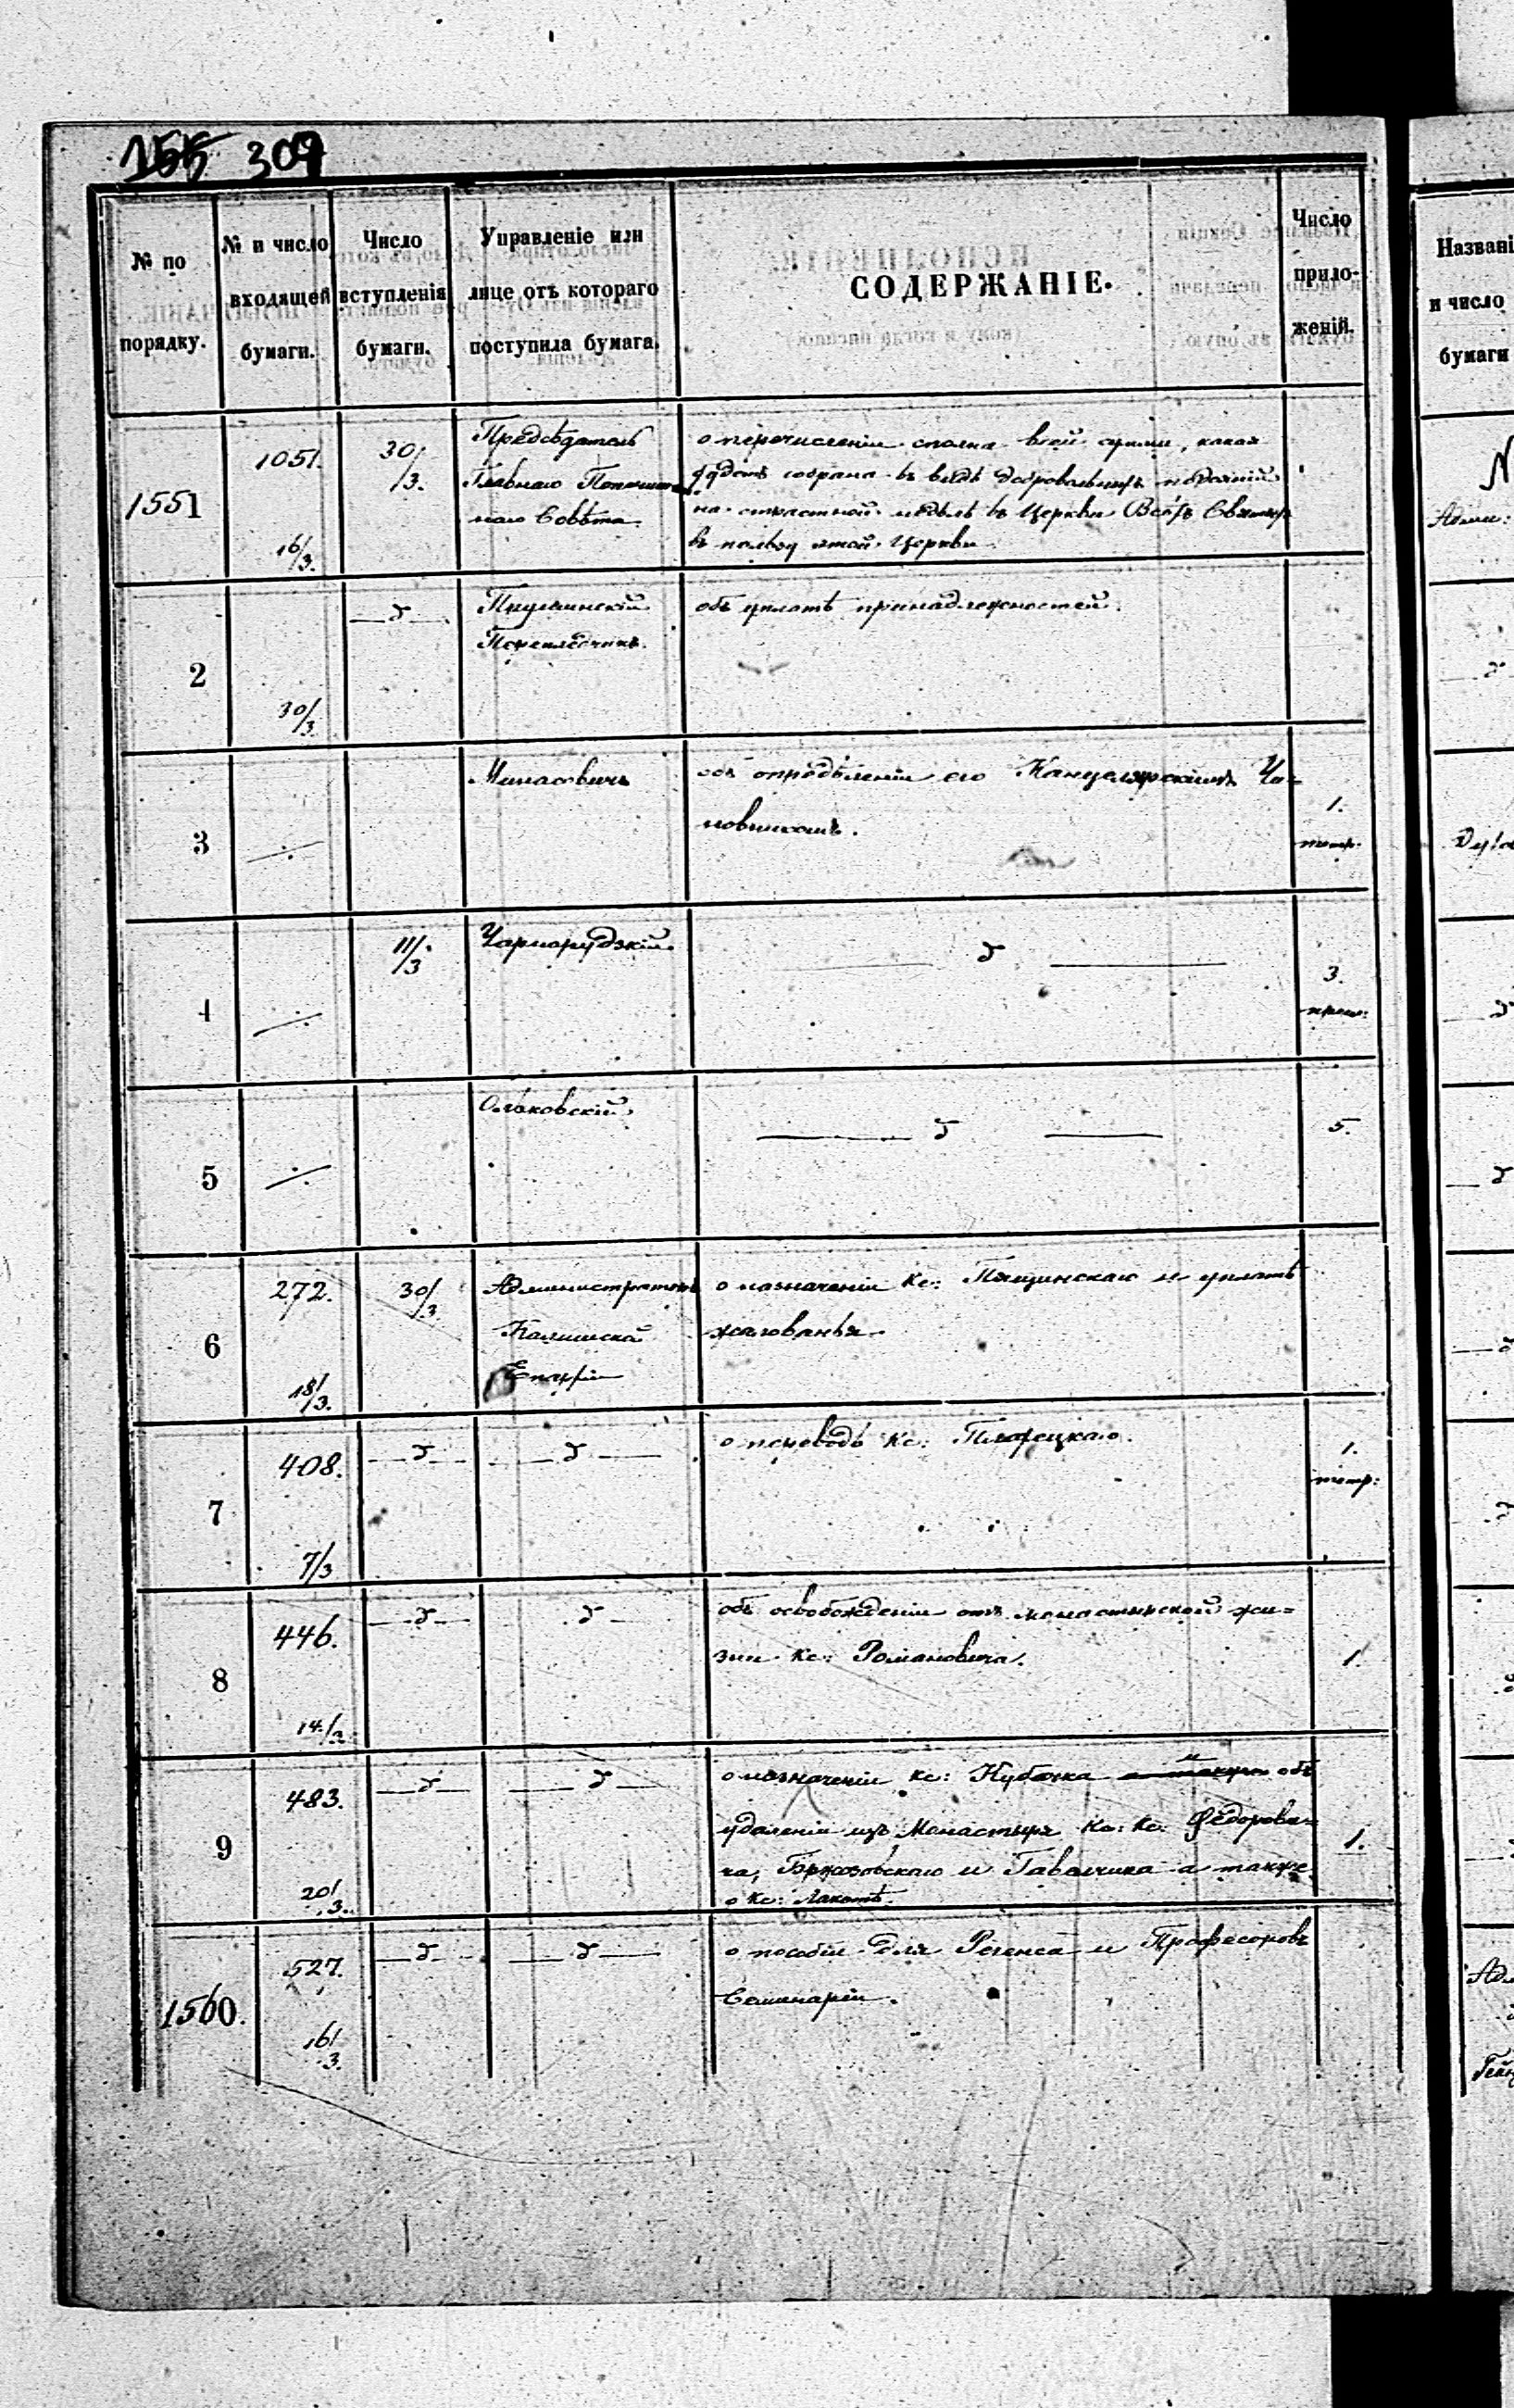 155 309
№ по порядку.
№ и число входящей бумаги.
Число вступленія бумаги.
Управленіе или лице отъ котораго поступила бумага.
СОДЕРЖАНІЕ.
Число приложеній.
1551
1051.
16/3.
30/3.
Предсѣдатель
Главнаго Попечитель
наго Совѣта
о перечисленіи сполна всей суммы, какая
будетъ собрана въ видѣ добровольныхъ подаяній
на страстной недѣлѣ въ Церкви Всѣхъ Святыхъ
въ пользу этой Церкви
2
30/3
д
Переплетчикъ.
объ уплатѣ принадлежностей.
3
Минасовичъ
объ опредѣленіи его Канцелярскимъ Чи=
новникомъ.
1.
4
11/3
Чарнорудзкій
д
3.
5
Ольковскій
д
5.
6
272.
18/3.
30/3
Администраторъ
Калишской
Епархіи
о назначеніи Кс: и уплатѣ
жалованья.
7
408.
7/3
д
д
о переводѣ Кс:
1.
8
446.
14/3
д
д
объ освобожденіи отъ монастырской жи=
зни Кс: Романовича.
1.
9
483.
20/3.
д
д
о назначеніи Кс: Кубачка и объ
удаленіи изъ Монастыря Кс: Кс: Федорови=
ча, Бржозовскаго и Гавличка а также
о Кс:
1.
1560.
527.
16/3.
д
д
о пособіи для Регенса и Професоровъ
Семинаріи.
Названі
и число
бумаги